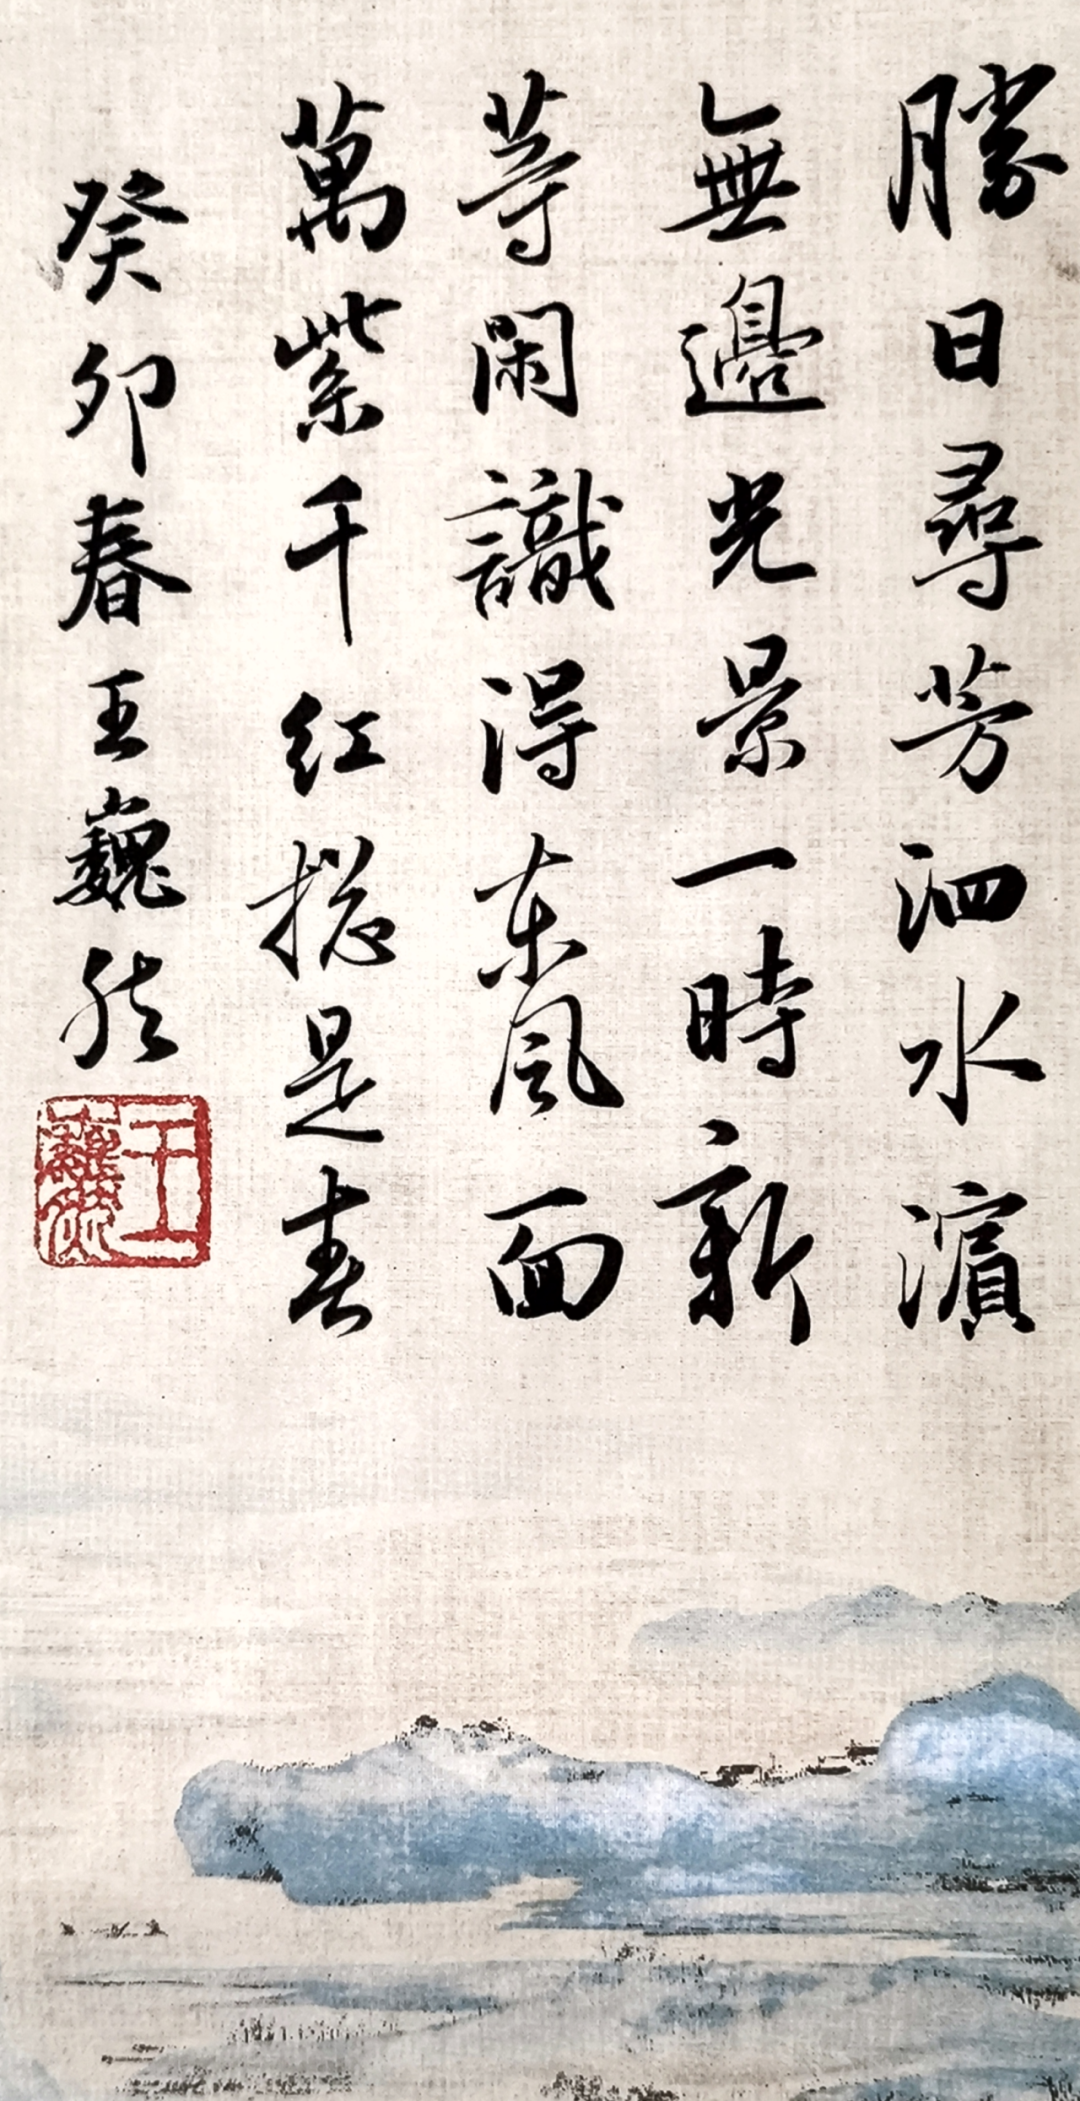 勝日尋芳泗水濱
無邊光景一時新
等閑識得東風面
萬紫千紅揔是春
癸卯春王巍然
王巍然